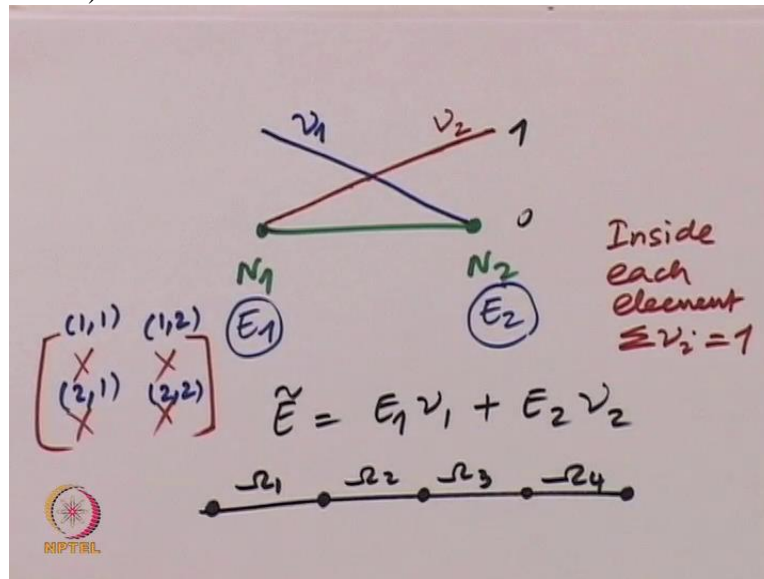 )
ν1 ν2 1
0
N1 N2
E1 E2
Inside
each
element
Σνi = 1
(1,1) (1,2)
× ×
(2,1) (2,2)
× ×
Ẽ = E1 ν1 + E2 ν2
Ω1 Ω2 Ω3 Ω4
NPTEL